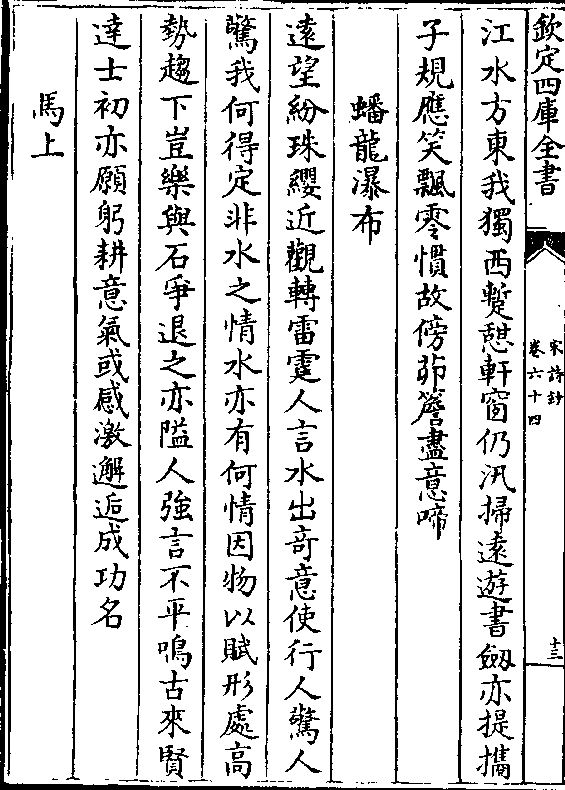 欽定四庫全書
宋詩鈔
卷六十四
十三
江水方東我獨西蹔憇軒窗仍汛掃逺遊書劔亦提攜
子規應笑飄零慣故傍茆簷盡意啼
蟠龍瀑布
逺望紛珠纓近觀轉雷霆人言水出竒意使行人驚人
驚我何得定非水之情水亦有何情因物以賦形處高
勢趨下豈樂與石爭退之亦隘人強言不平鳴古來賢
達士初亦願躬耕意氣或感激邂逅成功名
馬上